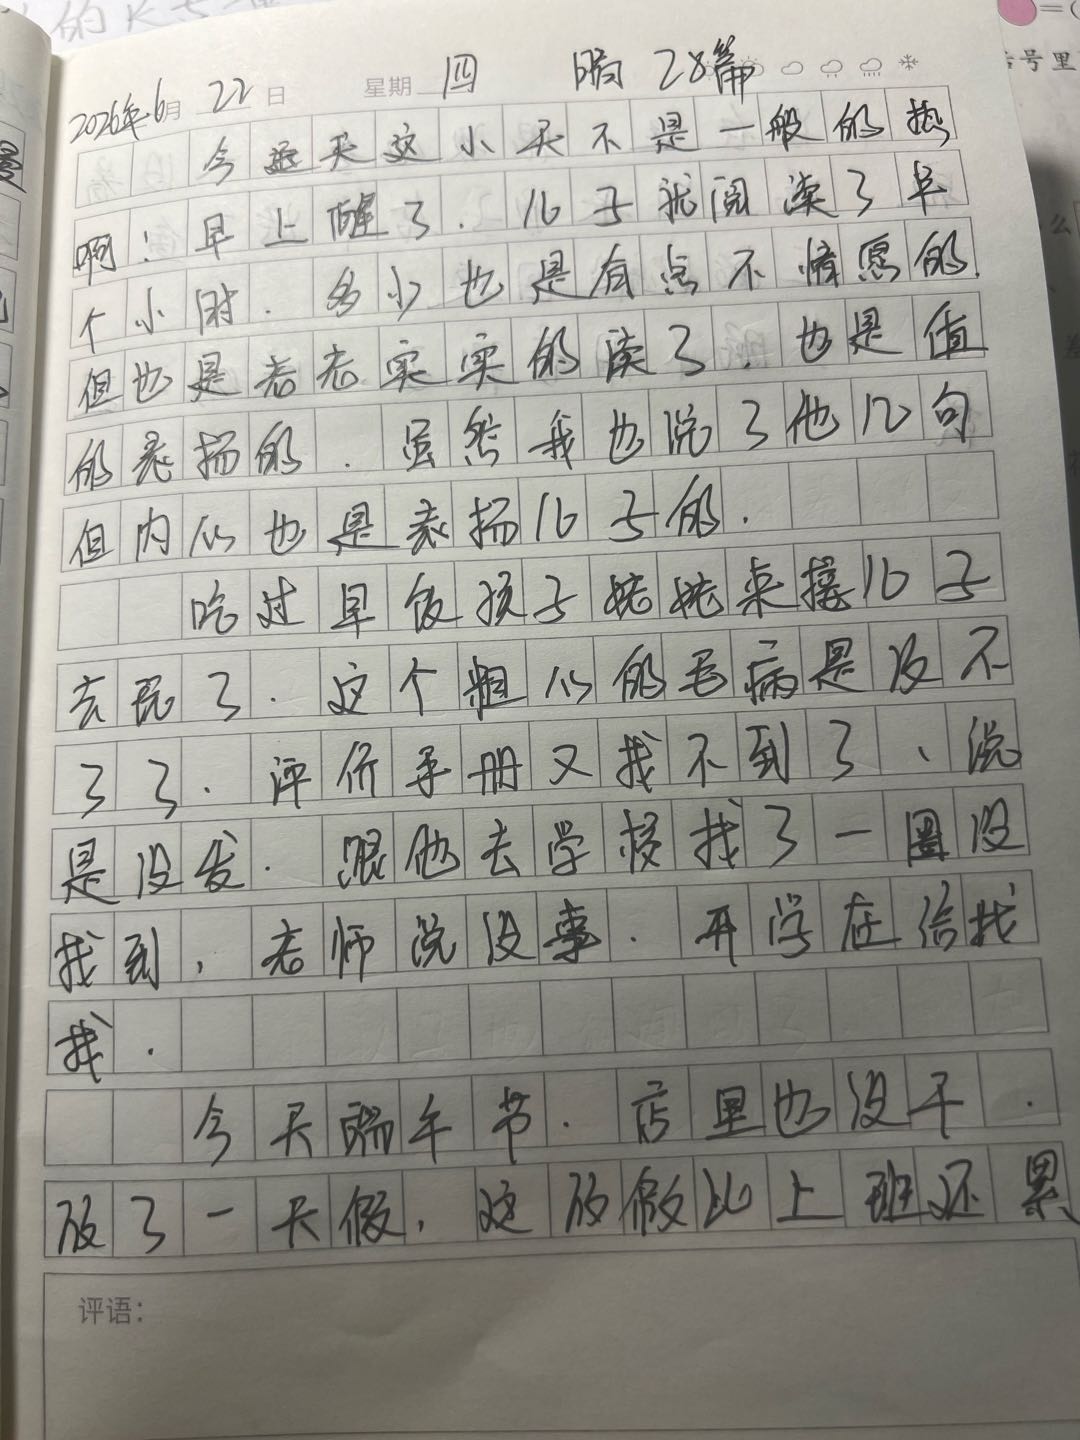 2026年6月22日 星期四 晴 28篇
今天这小天不是一般的热
啊！早上醒了.儿子就阅读了半
个小时.多少也是有点不情愿的.
但也是老老实实的读了.也是值
的表扬的.虽然我也说了他几句
但内心也是表扬儿子的.
吃过早饭孩子姥姥来接儿子
去玩了.这个粗心的毛病是没不
了了.评价手册又找不到了、说
是没发.跟他去学校找了一圈没
找到,老师说没事.开学在给找
找.
今天端午节.店里也没干.
放了一天假,这放假比上班还累
评语：